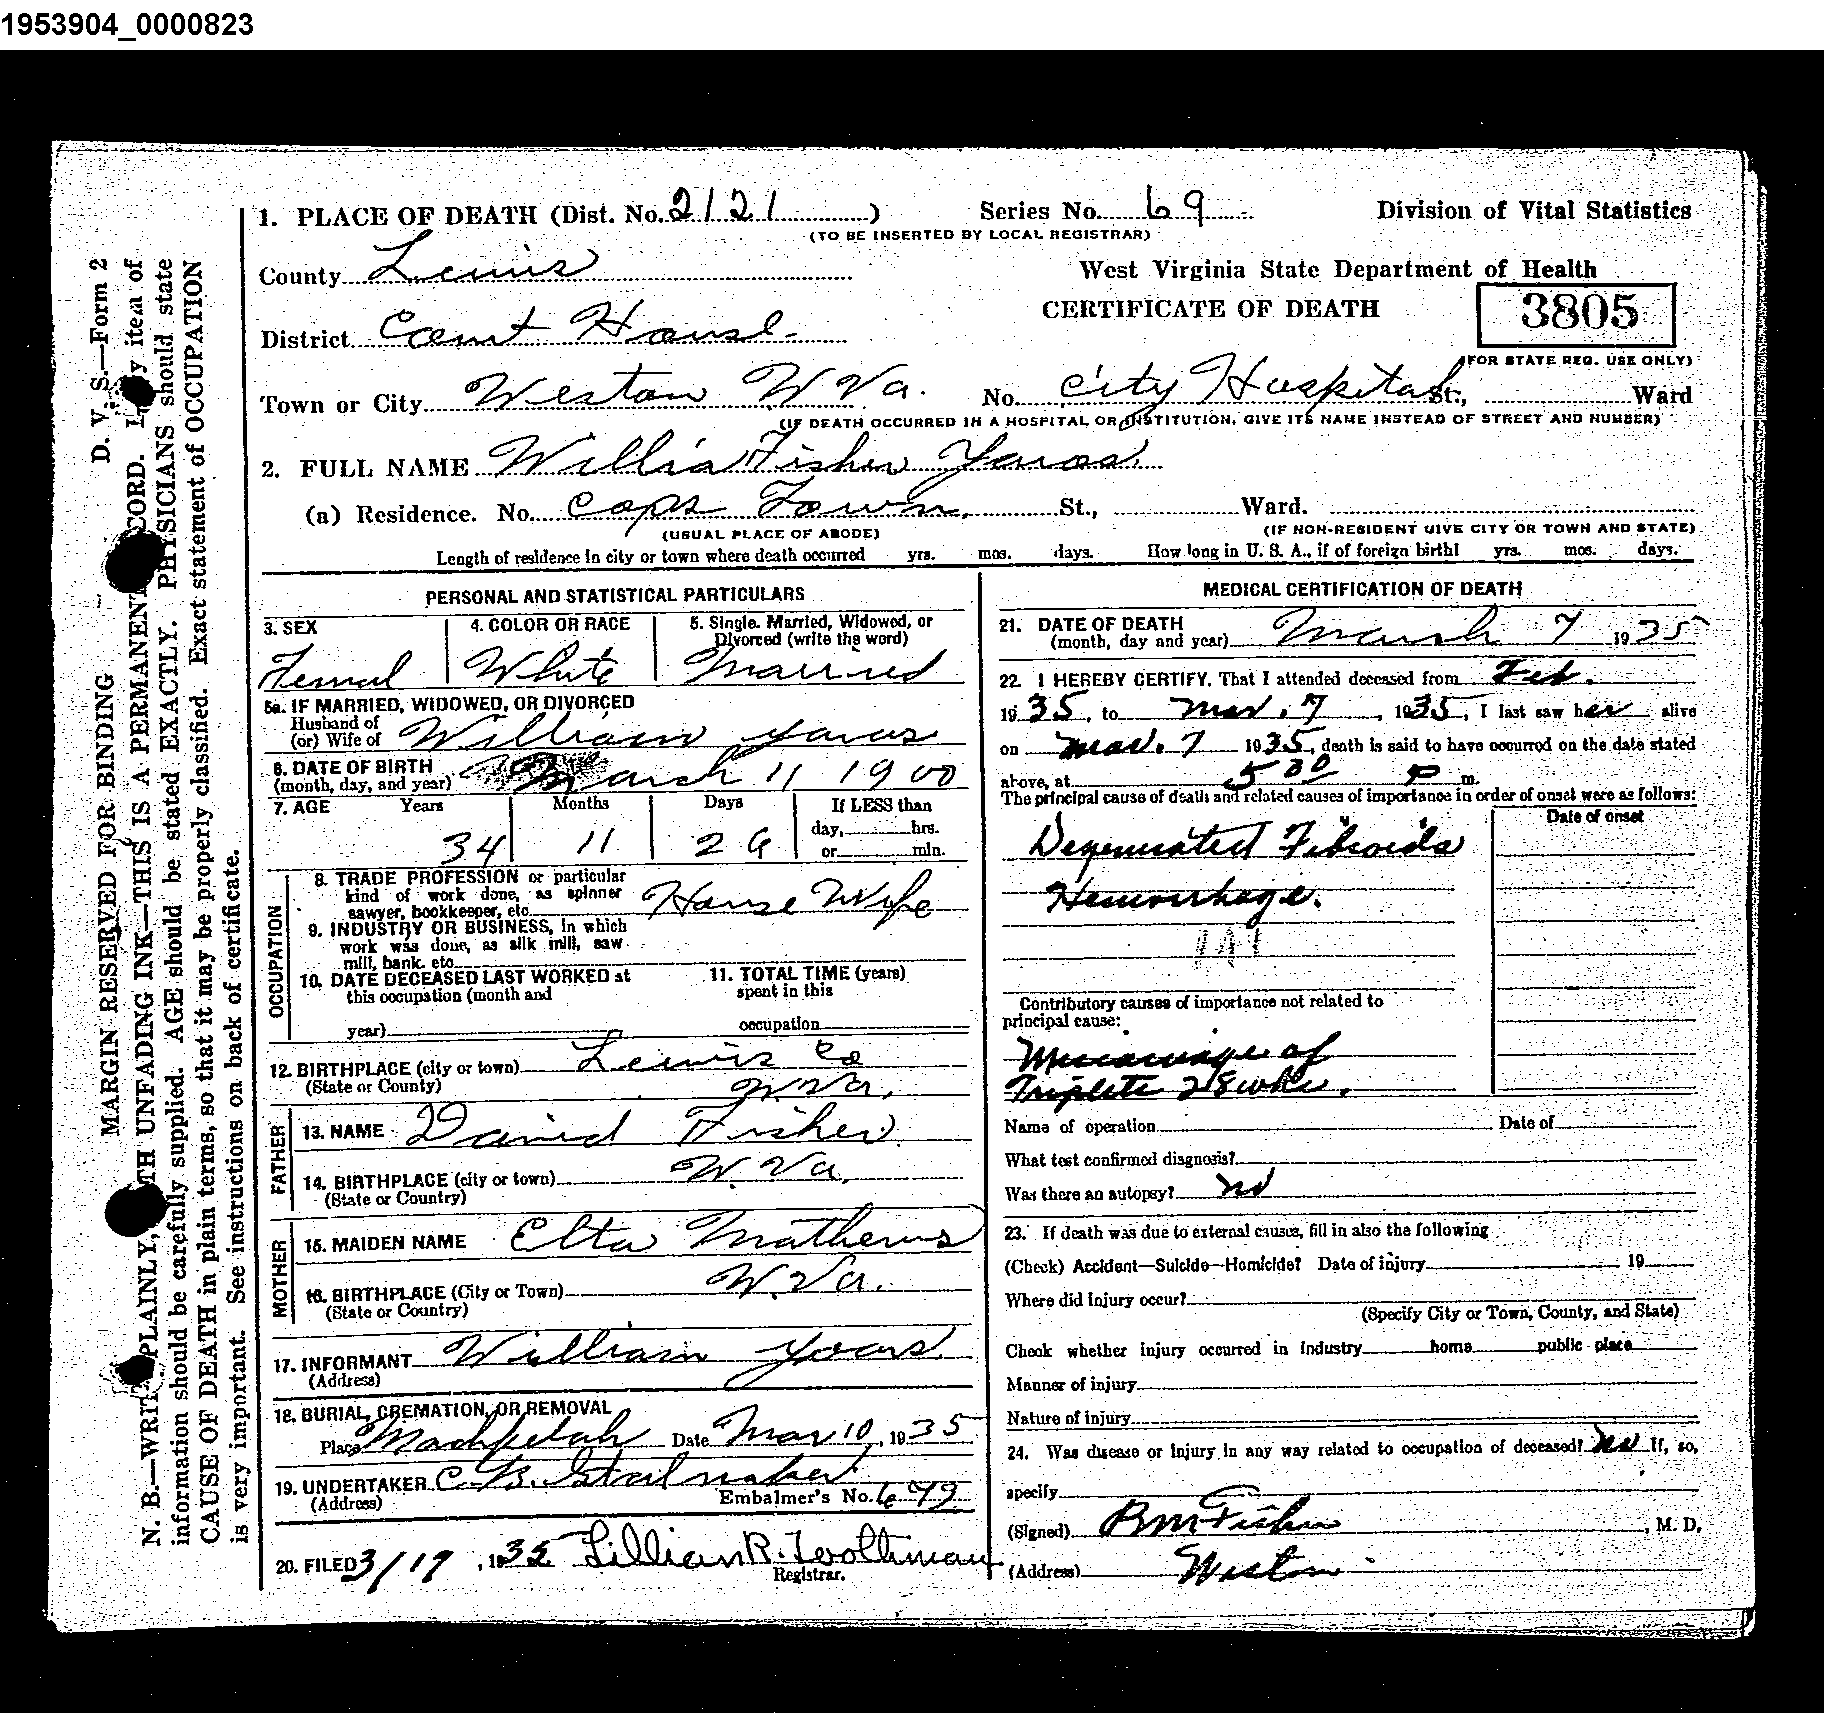 1953904_0000823
1. PLACE OF DEATH (Dist. No. 2121 )
Series No. 69
Division of Vital Statistics
(TO BE INSERTED BY LOCAL REGISTRAR)
County Lewis
West Virginia State Department of Health
CERTIFICATE OF DEATH
3805
(FOR STATE REG. USE ONLY)
District Court House
Town or City Weston W Va. No. City Hospital St., Ward
(IF DEATH OCCURRED IN A HOSPITAL OR INSTITUTION, GIVE ITS NAME INSTEAD OF STREET AND NUMBER)
2. FULL NAME Willia Fisher
(a) Residence. No. Cops Town. St., Ward.
(USUAL PLACE OF ABODE)
(IF NON-RESIDENT GIVE CITY OR TOWN AND STATE)
Length of residence in city or town where death occurred yrs. mos. days. How long in U. S. A., if of foreign birth? yrs. mos. days.
PERSONAL AND STATISTICAL PARTICULARS
3. SEX
Femal
4. COLOR OR RACE
White
5. Single. Married, Widowed, or
Divorced (write the word)
Married
5a. IF MARRIED, WIDOWED, OR DIVORCED
Husband of
(or) Wife of William
6. DATE OF BIRTH
(month, day, and year) March 11 1900
7. AGE Years Months Days If LESS than
day, hrs.
or min.
34 11 26
OCCUPATION
8. TRADE PROFESSION or particular
kind of work done, as spinner
sawyer, bookkeeper, etc. House Wife
9. INDUSTRY OR BUSINESS, in which
work was done, as silk mill, saw
mill, bank. etc.
10. DATE DECEASED LAST WORKED at
this occupation (month and
year)
11. TOTAL TIME (years)
spent in this
occupation
12. BIRTHPLACE (city or town) Lewis Co
(State or County) W.Va.
FATHER
13. NAME David Fisher
14. BIRTHPLACE (city or town) W.Va.
(State or Country)
MOTHER
15. MAIDEN NAME Elta Mathews
16. BIRTHPLACE (City or Town) W.Va.
(State or Country)
17. INFORMANT William
(Address)
18. BURIAL, CREMATION, OR REMOVAL
Place Machpelah Date Mar 10, 1935
19. UNDERTAKER C. B. Stalnaker
(Address) Embalmer's No. 679
20. FILED 3/19, 1935 Lillian R.
Registrar.
MEDICAL CERTIFICATION OF DEATH
21. DATE OF DEATH
(month, day and year) March 7 1935
22. I HEREBY CERTIFY, That I attended deceased from Feb.
1935, to Mar. 7, 1935, I last saw her alive
on Mar. 7 1935, death is said to have occurred on the date stated
above, at 5 00 P m.
The principal cause of death and related causes of importance in order of onset were as follows:
Date of onset
Degenerated Fibroids
Hemorrhage.
Contributory causes of importance not related to
principal cause:
Miscarriage of
Triplets 28 wks.
Name of operation Date of
What test confirmed diagnosis?
Was there an autopsy? no
23. If death was due to external causes, fill in also the following
(Check) Accident—Suicide—Homicide? Date of injury 19
Where did injury occur?
(Specify City or Town, County, and State)
Check whether injury occurred in industry home public place
Manner of injury
Nature of injury
24. Was disease or injury in any way related to occupation of deceased? No If, so,
specify
(Signed) B M Fisher, M. D.
(Address) Weston
D. V. S.—Form 2
MARGIN RESERVED FOR BINDING
N. B.—WRITE PLAINLY, WITH UNFADING INK—THIS IS A PERMANENT RECORD. Every item of
information should be carefully supplied. AGE should be stated EXACTLY. PHYSICIANS should state
CAUSE OF DEATH in plain terms, so that it may be properly classified. Exact statement of OCCUPATION
is very important. See instructions on back of certificate.